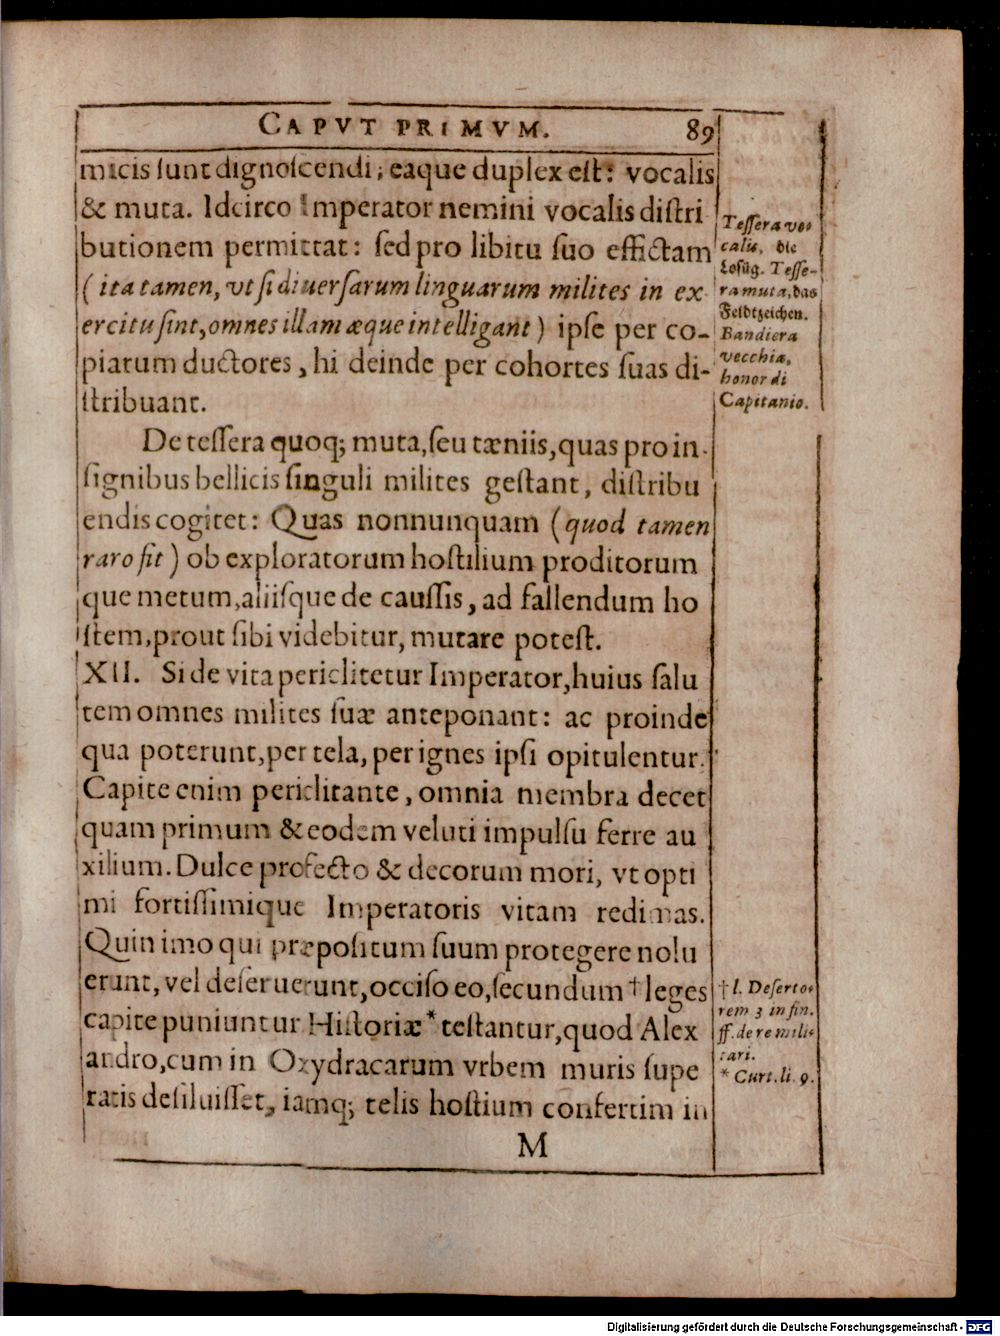 CAPVT PRIMVM. 89
micis ſunt dignoſcendi; eaque duplex eſt: vocalis
& muta. Idcirco Imperator nemini vocalis diſtri
butionem permittat: ſed pro libitu ſuo effictam
(ita tamen, vt ſi diuerſarum linguarum milites in ex
ercitu ſint, omnes illam æque intelligant) ipſe per co-
piarum ductores, hi deinde per cohortes ſuas di-
ſtribuant.
De teſſera quoq; muta, ſeu tæniis, quas pro in-
ſignibus bellicis ſinguli milites geſtant, diſtribu
endis cogitet: Quas nonnunquam (quod tamen
raro fit) ob exploratorum hoſtilium proditorum
que metum, aliiſque de cauſſis, ad fallendum ho
ſtem, prout ſibi videbitur, mutare poteſt.
XII. Si de vita periclitetur Imperator, huius ſalu
tem omnes milites ſuæ anteponant: ac proinde
qua poterunt, per tela, per ignes ipſi opitulentur.
Capite enim periclitante, omnia membra decet
quam primum & eodem veluti impulſu ferre au
xilium. Dulce profecto & decorum mori, vt opti
mi fortiſſimique Imperatoris vitam redimas.
Quin imo qui præpoſitum ſuum protegere nolu
erunt, vel deſeruerunt, occiſo eo, ſecundum † leges
capite puniuntur Hiſtoriæ * teſtantur, quod Alex
andro, cum in Oxydracarum vrbem muris ſupe
ratis deſiluiſſet, iamq; telis hoſtium confertim in
M
Teſſera vo-
calis, die
Loſũg. Teſſe-
ra muta, das
Feldtzeichen.
Bandiera
vecchia,
honor di
Capitanio.
† l. Deſerto-
rem 3 in fin.
ff. de re mili-
tari.
* Curt. li. 9.
Digitalisierung gefördert durch die Deutsche Forschungsgemeinschaft - DFG